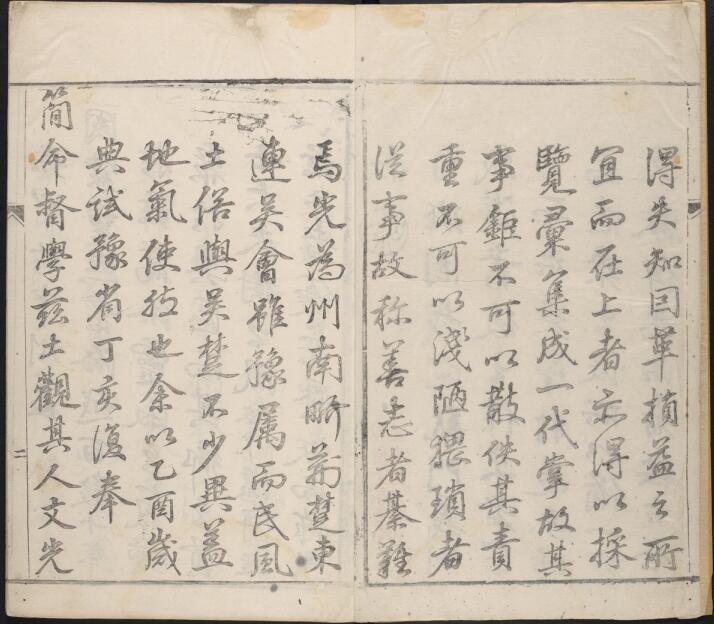 得失知因革損益之所
宜而在上者亦得以採
覽彙集成一代掌故其
事鉅不可以散佚其責
重不可以淺陋猥瑣者
從事故称善志者綦難
焉光為州南畍荊楚東
連吴會雖豫属而民風
土俗與吴楚不少異蓋
地氣使然也余以乙酉歲
典試豫省丁亥復奉
簡命督學茲土觀其人文光
二